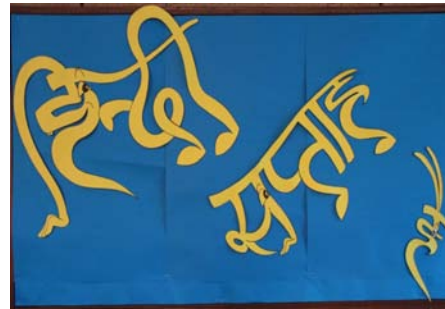 हिन्दी
सप्ताह